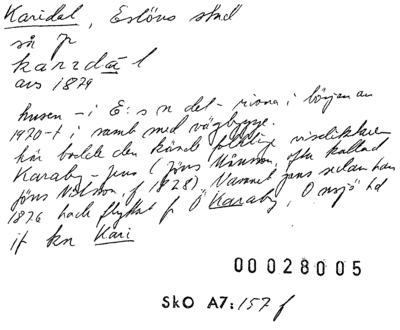 Karidal, Eslövs stad
så p
karıdá l
avs 1879
husen - i E:s n del - rivna i början av
1970-t i samb med vägbygge.
här bodde den kände visdiktaren
Karaby-Jens (Jöns Månsson, ofta kallad
Jöns f 1828) Namnet sedan han
1876 hade flyttat f Ö Karaby, Onsjö hd
jf kn Kari
00028005
SkO A7:157 f